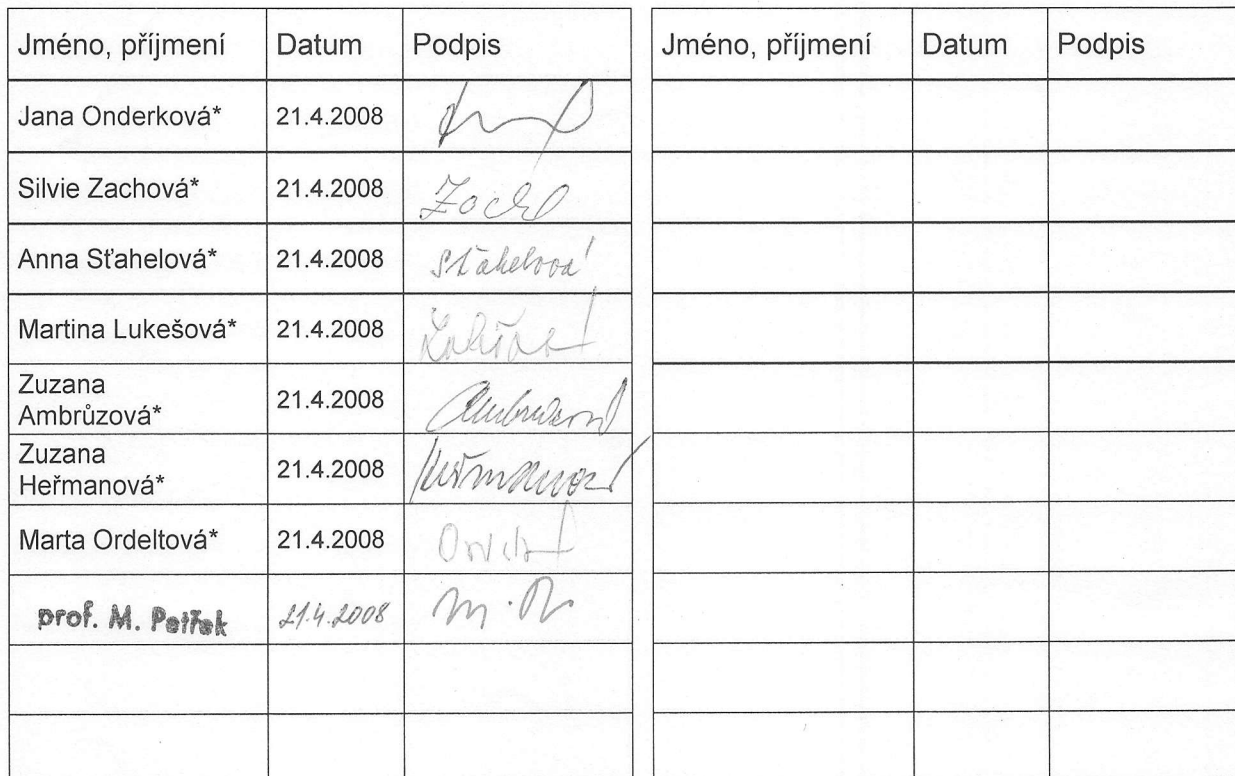 Jméno, příjmení Datum Podpis
Jana Onderková* 21.4.2008
Silvie Zachová* 21.4.2008
Anna Sťahelová* 21.4.2008 Sťahelová
Martina Lukešová* 21.4.2008
Zuzana
Ambrůzová* 21.4.2008
Zuzana
Heřmanová* 21.4.2008 Heřmanová
Marta Ordeltová* 21.4.2008
prof. M. Petřek 21.4.2008
Jméno, příjmení Datum Podpis